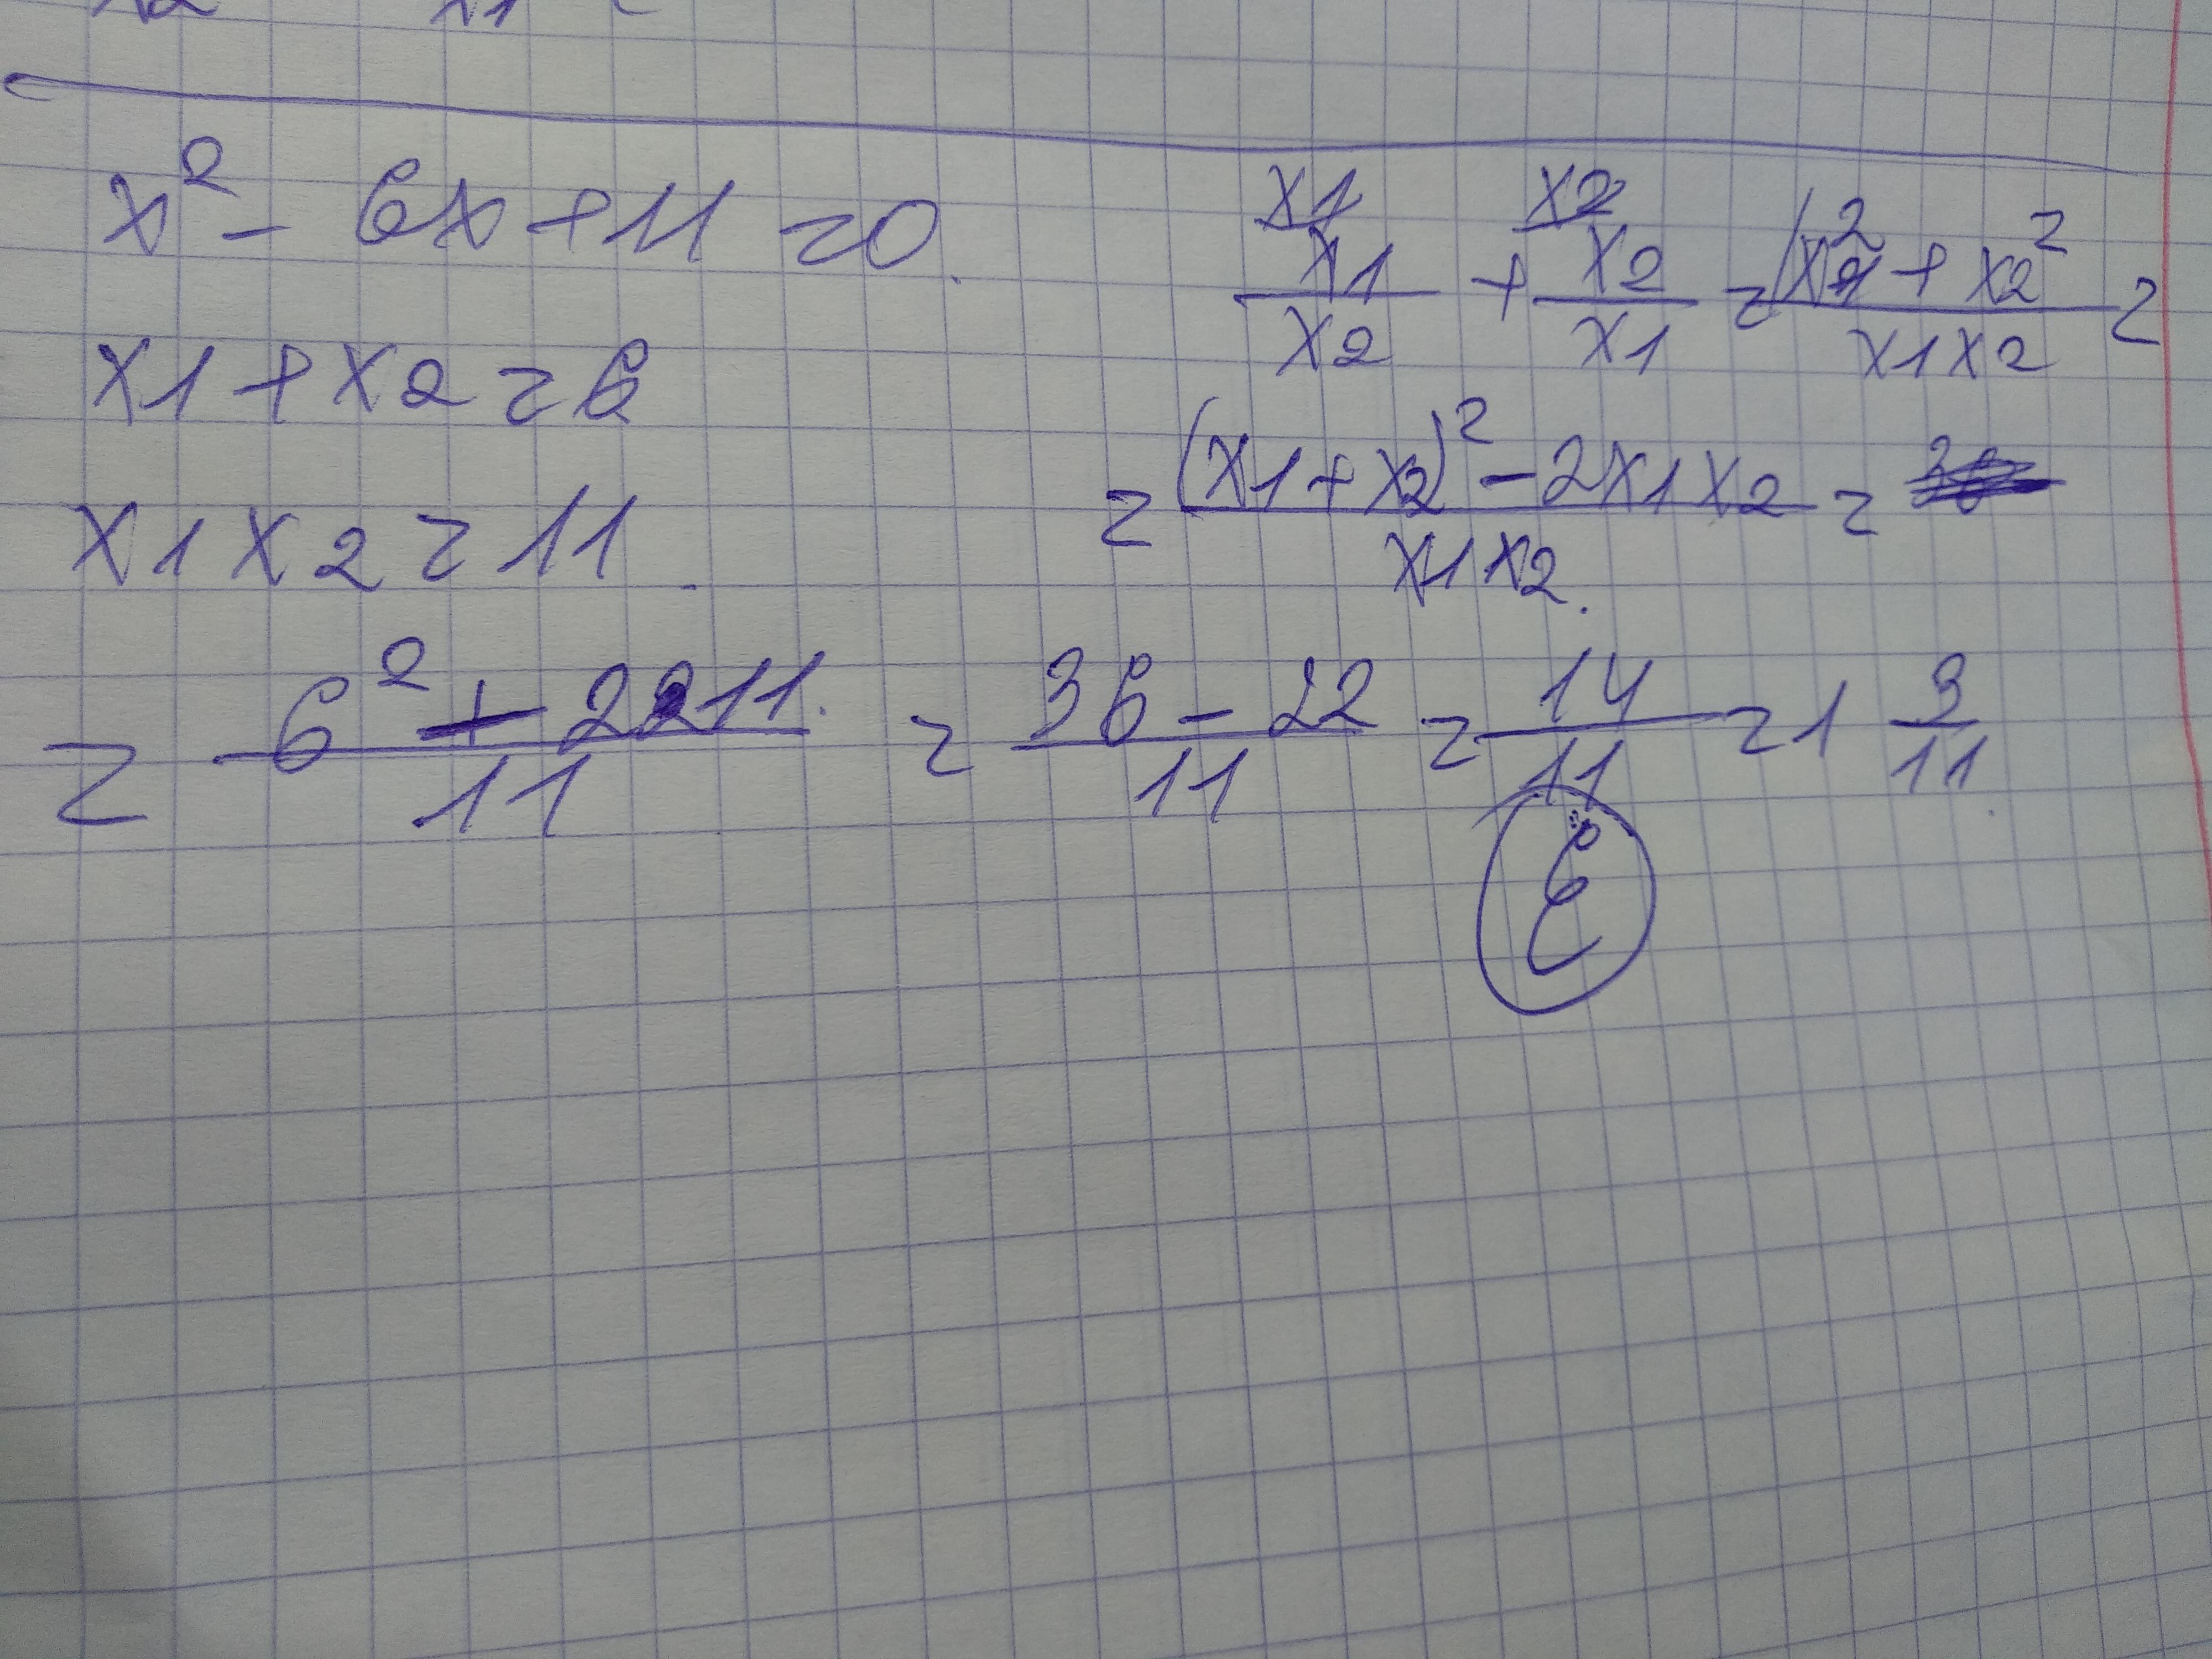 x² - 6x + 11 = 0.
x1 + x2 = 6
x1 x2 = 11.
x1 x2
x1/x2 + x2/x1 = (x1² + x2²)/(x1x2) =
= ((x1 + x2)² - 2x1x2)/(x1x2.) =
= (6² - 2·11.)/11 = (36 - 22)/11 = 14/11 = 1 3/11.